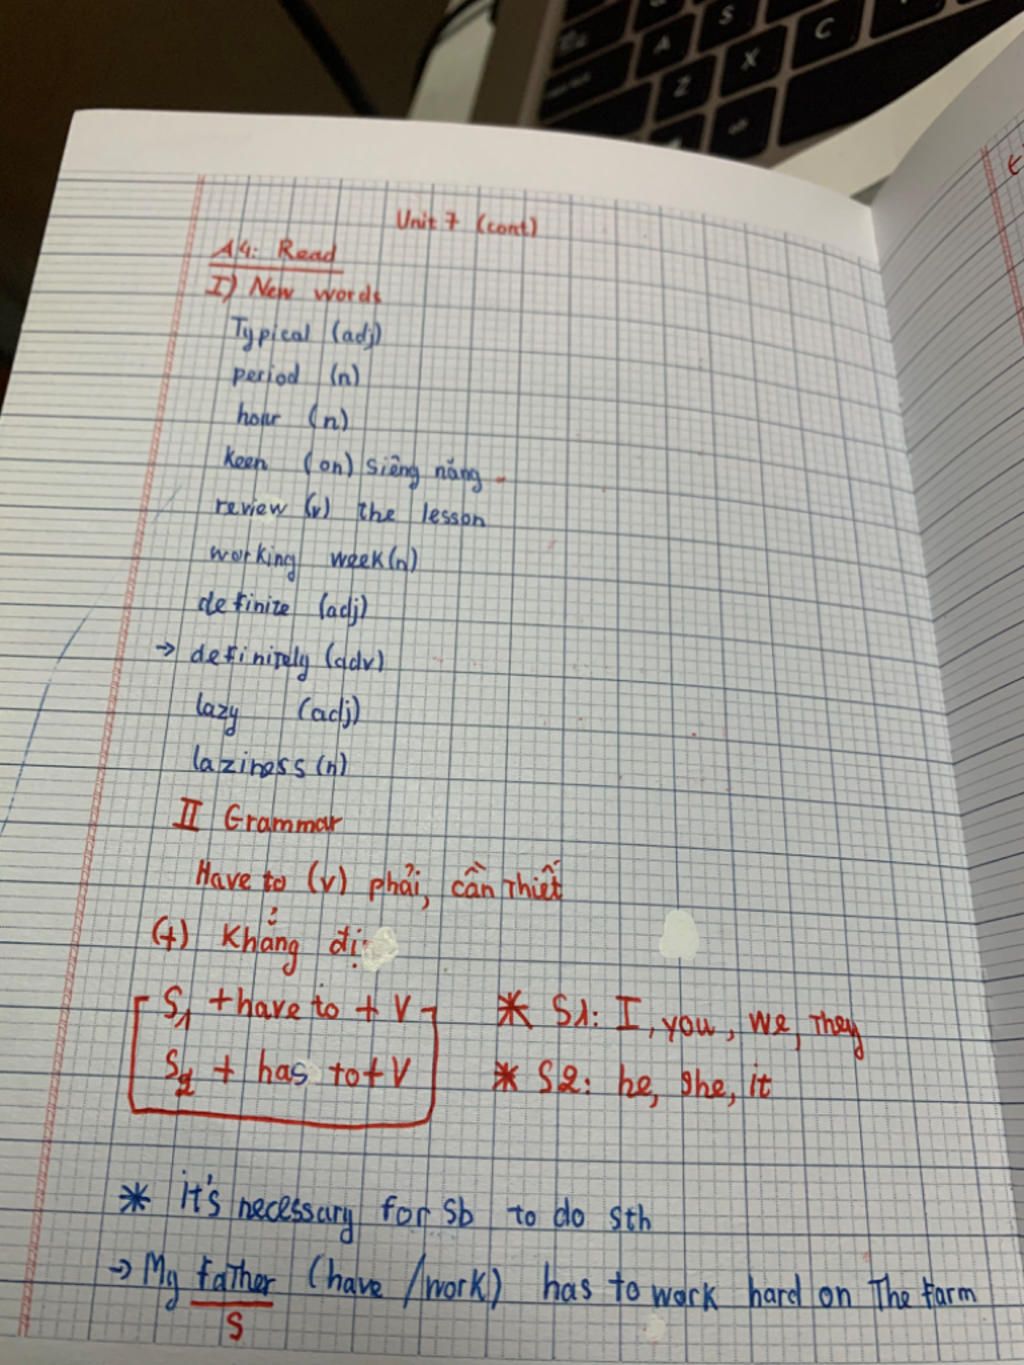 Unit 7 (cont)
A4: Read
I) New words
Typical (adj)
period (n)
hour (n)
keen (on) siêng năng
review (v) the lesson
working week (n)
definite (adj)
→ definitely (adv)
lazy (adj)
laziness (n)
II Grammar
Have to (v) phải, cần thiết
(+) Khẳng đị
S1 + have to + V * S1: I, you, we, They
S2 + has to + V * S2: he, she, it
* it's necessary for Sb to do Sth
→ My father (have / work) has to work hard on The farm
S
A
S
Z
X
C